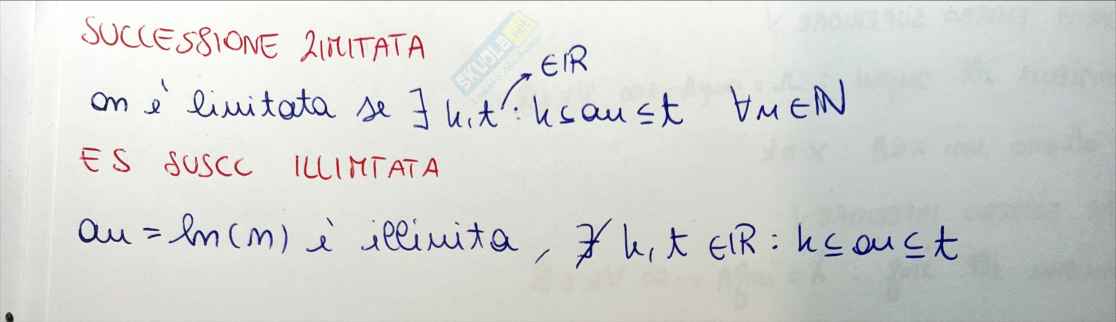 SUCCESSIONE LIMITATA
∈ℝ
an è limitata se ∃ k,t : k ≤ an ≤ t ∀n∈ℕ
ES SUSCC ILLIMTATA
an = ln(n) è illimita, ∄ k, t ∈ℝ : k ≤ an ≤ t